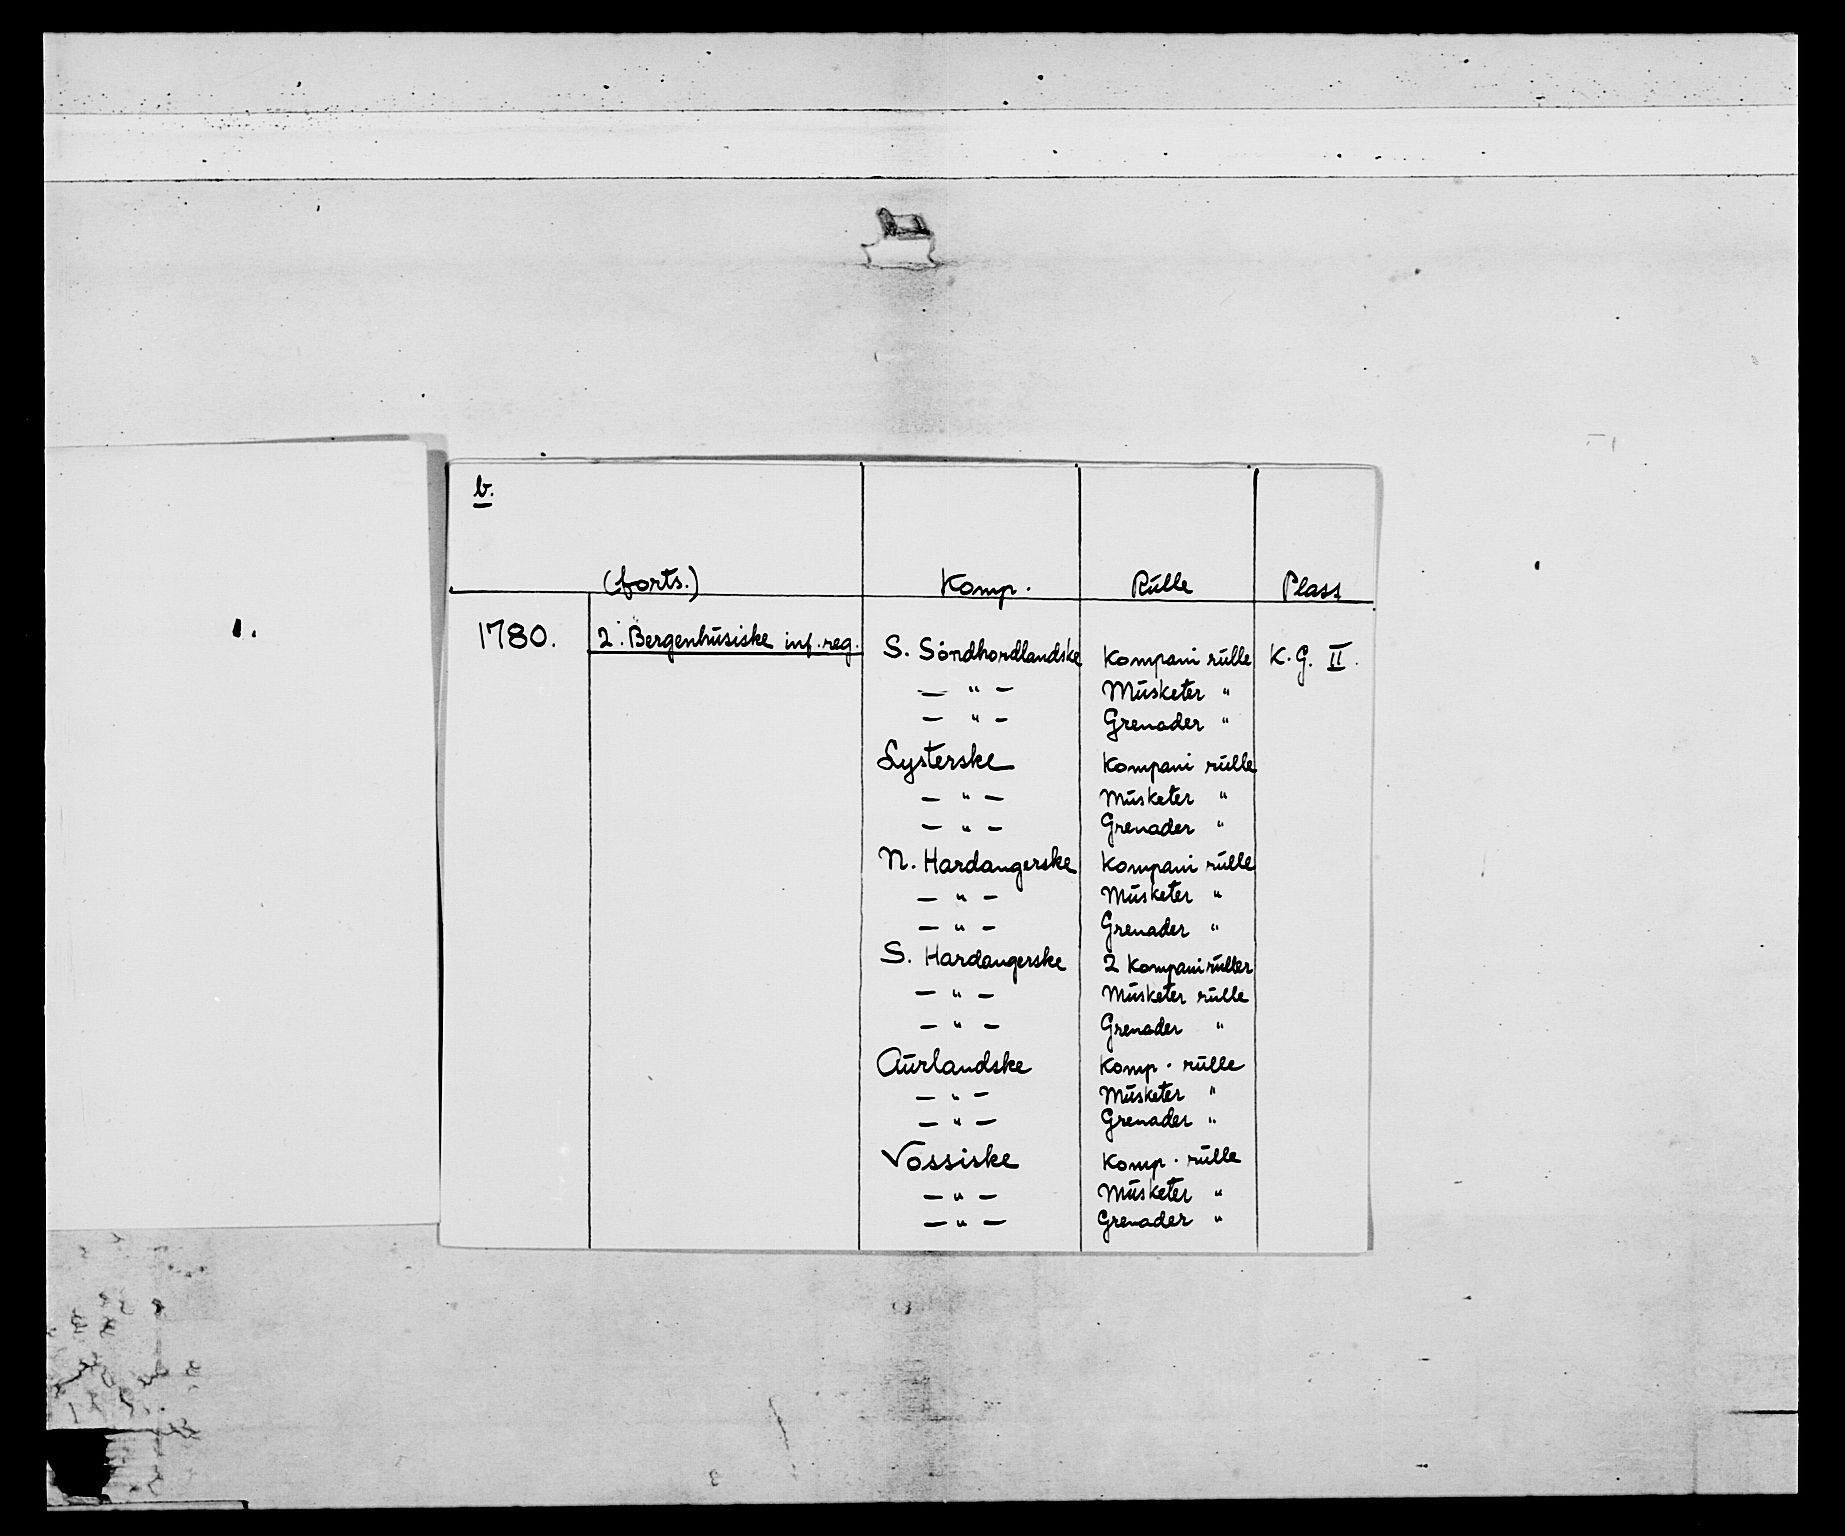 b.
(forts.) Komp. Rulle Plass
1780. 2. Bergenhusiske inf. reg. S. Söndhordlandske Kompani rulle K.G. II.
— " — Musketer "
— " — Grenader "
Lysterske Kompani rulle
— " — Musketer "
— " — Grenader "
N. Hardangerske Kompani rulle
— " — Musketer "
— " — Grenader "
S. Hardangerske 2 Kompani ruller
— " — Musketer rulle
— " — Grenader "
Aurlandske Komp. rulle
— " — Musketer "
— " — Grenader "
Vossiske Komp. rulle
— " — Musketer "
— " — Grenader "